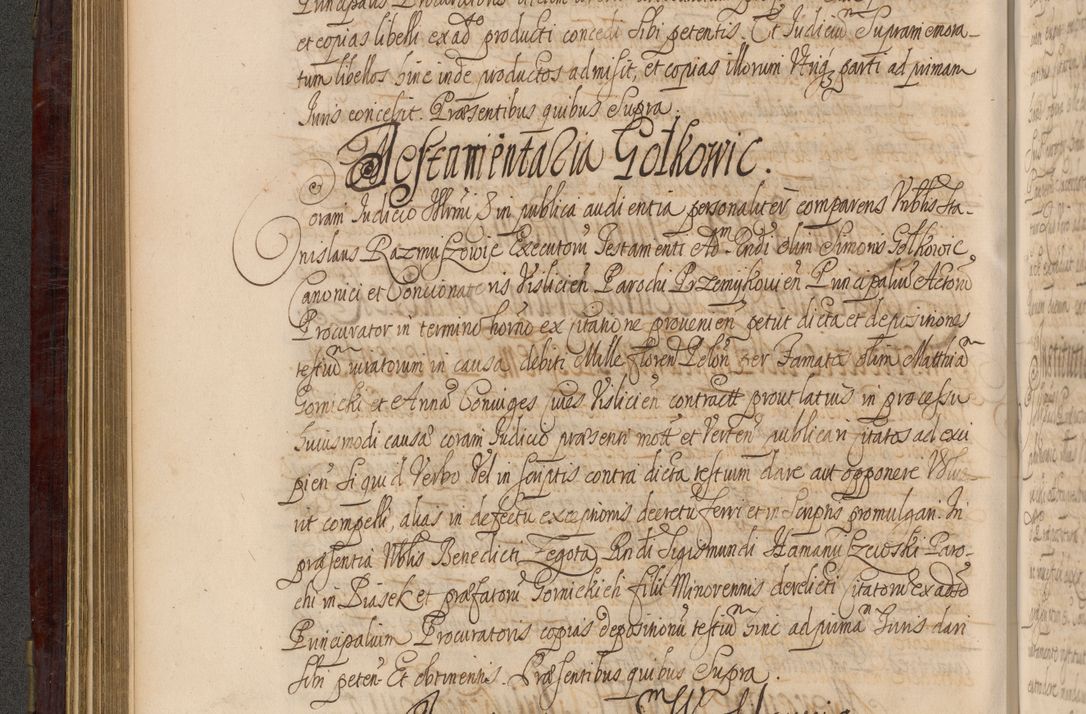 et copias libelli ex adso producti concedi sibi petentis. Et Judiciũ Supramemora-
tum libellos hinc inde productos admisit, et copias illorum Utriq parti ad primam
Juris concessit. Præsentibus quibus Supra.
Testamentaria Golkowic.
Coram Judicio Illrmi S in publica audientia personaliter comparens Nobilis Sta-
nislaus Razmuszowic Executorũ Testamenti Ad Rndi olim Simonis Golkowic
Canonici et Concionatoris Vislicień Parochi Przemykowień Principaliũ Actorũ
Procurator in termino horno ex citatione provenień petiit dicta et depositiones
testiũ iuratorum in causa debiti Mille floren Polon per Famatõ olim Matthiam
Gornicki et Annã Coniuges cives Vislicień contractt prout latius in processu
huiusmodi causæ coram Judicio præsenti mott et verten publicari citatos ad exci
pień si quid Verbo Vel in Scriptis contra dicta testium dare aut opponere
rit compelli, alias in defectu exceptionis decretũ ferri et in Scriptis promulgari. In
præsentia Nblis Benedicti Zegota Rndi Sigismundi Paro-
chi in Biasek et præfatorũ Gornickich filii Minorennis derelicti citatorũ ex adso
Principalium Procuratoris copias depositionũ testiũ hinc ad primã Juris dari
sibi peten. Et obtinentis. Præsentibus quibus Supra.